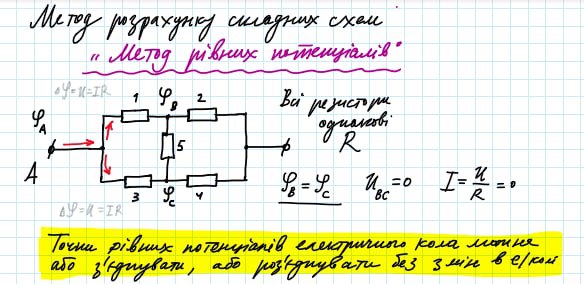 Метод розрахунку складних схем
"Метод рівних потенціалів"
Δφ=U=IR
1 φB 2
φA
A
5
3 φC 4
Δφ=U=IR
Всі резистори
однакові
R
φB = φC UBC=0 I=U/R=0
Точки рівних потенціалів електричного кола можна
або з'єднувати, або роз'єднувати без змін в е/колі